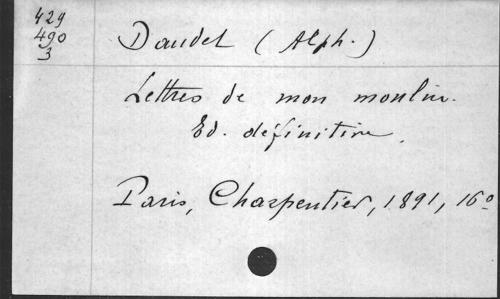 429
490
3
Daudet (Alph.)
Lettres de mon moulin.
Ed. définitive.
Paris, Charpentier, 1891, 16º